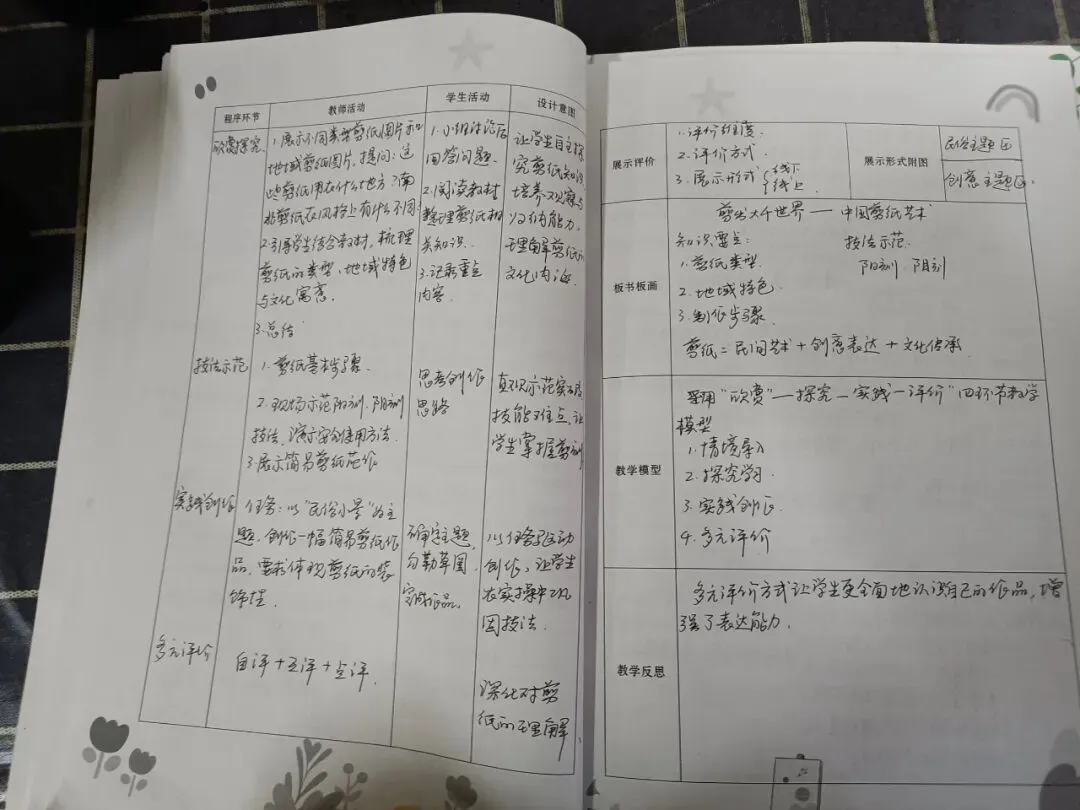 程序环节 教师活动 学生活动 设计意图
欣赏探究
1.展示不同类型剪纸图片和
地域剪纸图片,提问:这
些剪纸用在什么地方?南
北剪纸在风格上有什么不同?
2.引导学生结合教材,梳理
剪纸的类型、地域特色
与文化寓意.
3.总结
1.小组讨论后
回答问题.
2.阅读教材
整理剪纸相
关知识.
3.记录重点
内容.
让学生自主探
究剪纸知识,
培养观察与
归纳能力,
理解剪纸的
文化内涵.
技法示范
1.剪纸基本步骤.
2.现场示范阳刻、阴刻
技法,演示安全使用方法.
3.展示简易剪纸范作
思考创作
思路
直观示范突破
技能难点,让
学生掌握剪刻
实践创作
任务:以"民俗小景"为主
题,创作一幅简易剪纸作
品,要求体现剪纸的装
饰性.
确定主题,
勾勒草图,
完成作品.
以任务驱动
创作,让学生
在实操中巩
固技法.
多元评价
自评+互评+点评.
深化对剪
纸的理解.
展示评价
1.评价维度.
2.评价方式.
3.展示形式 线下 线上.
展示形式附图
民俗主题区
创意主题区.
板书板画
剪出大千世界——中国剪纸艺术
知识要点: 技法示范.
1.剪纸类型. 阳刻、阴刻
2.地域特色.
3.制作步骤.
剪纸=民间艺术+创意表达+文化传承.
教学模型
采用"欣赏—探究—实践—评价"四环节教学
模型
1.情境导入
2.探究学习.
3.实践创作
4.多元评价
教学反思
多元评价方式让学生更全面地认识自己的作品,增
强了表达能力.